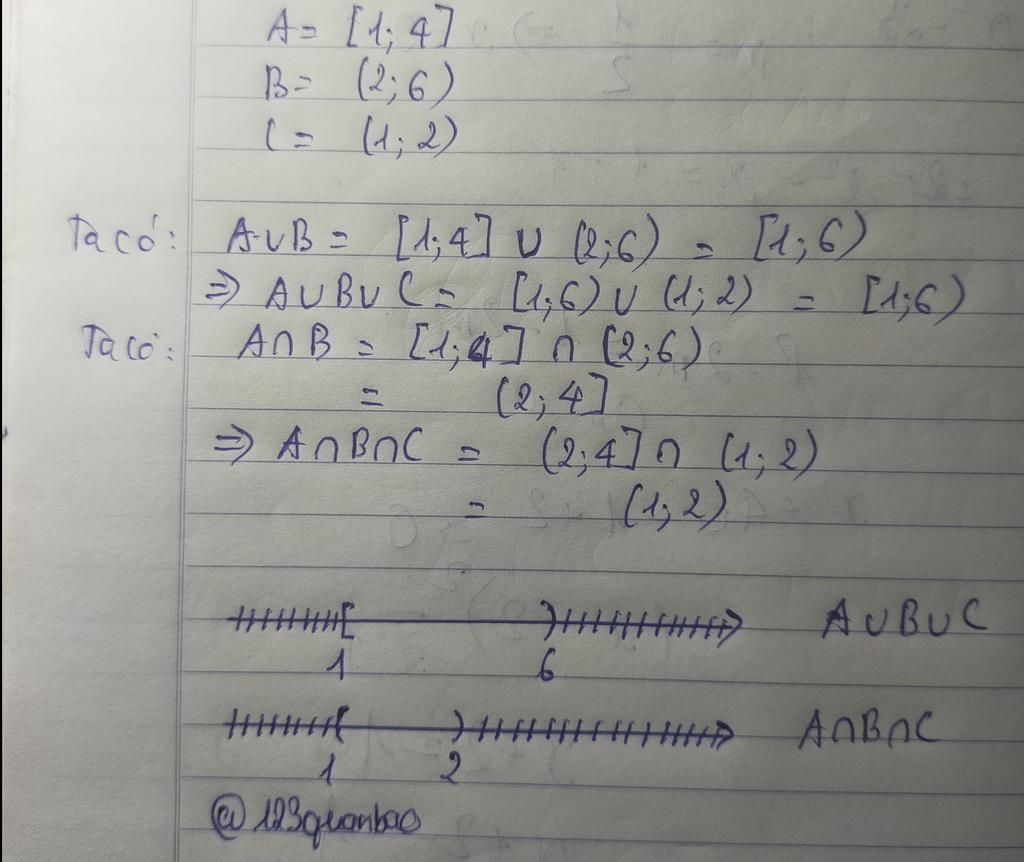 A = [1; 4]
B = (2; 6)
C = (1; 2)
Ta có: A∪B = [1; 4] ∪ (2; 6) = [1; 6)
⇒ A∪B∪C = [1; 6) ∪ (1; 2) = [1; 6)
Ta có: A∩B = [1; 4] ∩ (2; 6)
= (2; 4]
⇒ A∩B∩C = (2; 4] ∩ (1; 2)
= (1; 2)
[ ) A∪B∪C
1 6
( ) A∩B∩C
1 2
@123quanbao